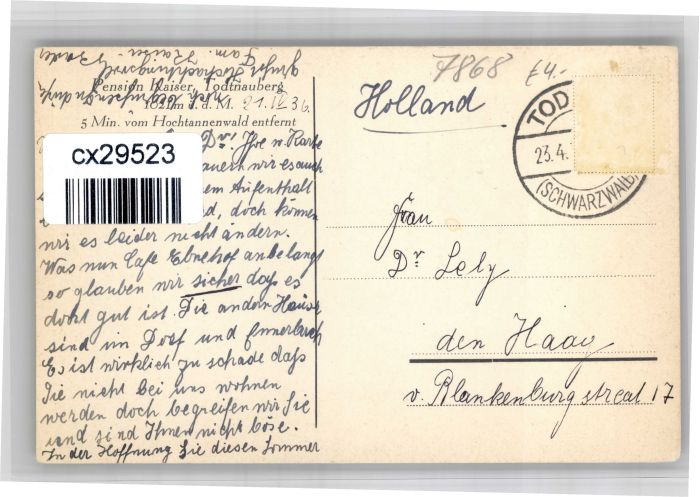 Pension Kaiser, Todtnauberg
1021 m ü. d. M. 21. IV. 36.
5 Min. vom Hochtannenwald entfernt
cx29523
Dr! Ihre w. Karte
wir es auch
em Aufenthalt
d, doch können
wir es leider nicht ändern.
Was nun Cafe Ebnehof anbelangt
so glauben wir sicher dass es
dort gut ist. Die andern Häuser
sind im Dorf und Ennerbach
Es ist wirklich zu schade dass
Sie nicht bei uns wohnen
werden doch begreifen wir Sie
und sind Ihnen nicht böse.
In der Hoffnung Sie diesen Sommer
grüsst
Hochachtungsvoll
Fam. Kaiser
7868 £4.-
Holland
TOD
23.4.
(SCHWARZWALD)
Frau
Dr Lely
den Haag
v. Blankenburgstreat 17